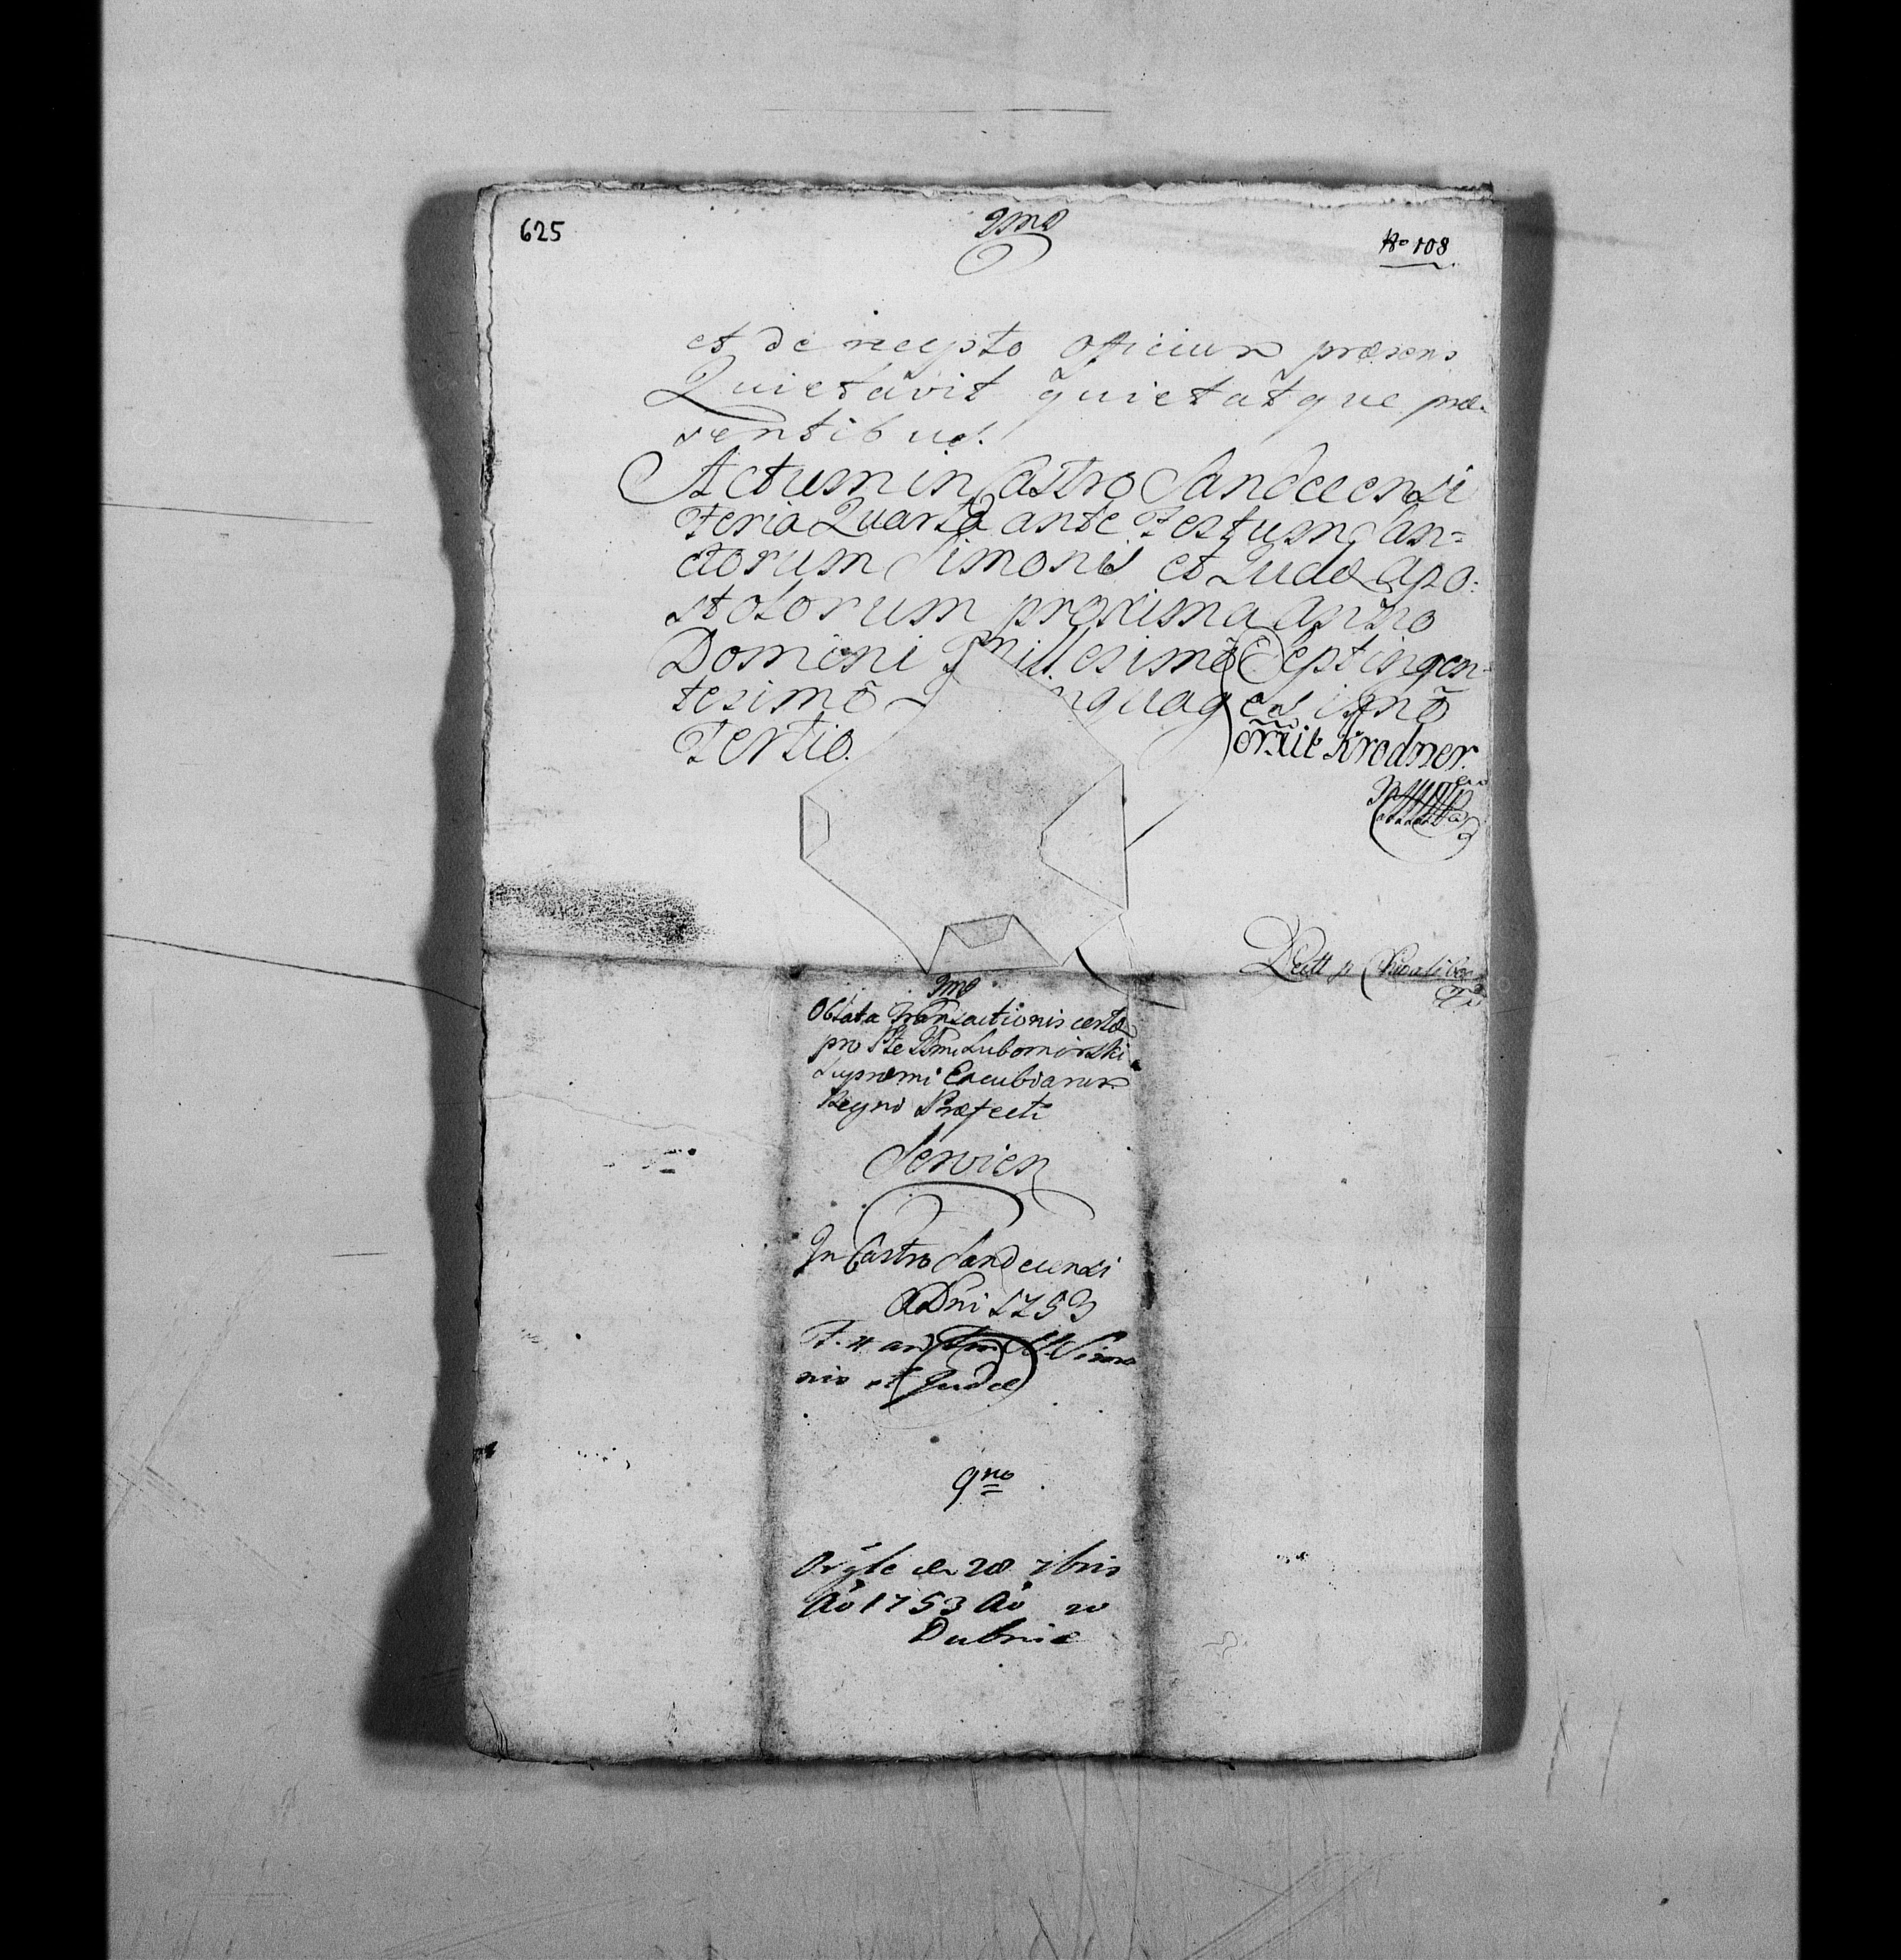 625
9mo
No 108
et de recepto Officium præsens
Quietavit quietatque præ-
sentibus.
Actum in Castro Sandecensi
Feria Quarta ante Festum San=
ctorum Simonis et Judæ Apo:
stolorum proxima Anno
Domini Millesimo Septingen-
tesimo nquagesimo
Tertio.
Krodner
9mo
Oblata Transactionis certæ
pro Pte Lubomirski
Supremi Excubiarum
Regni Præfecti
Servien
In Castro Sandecensi
ADni 1753
F. 4 an SS. Simo
nis et Judæ
9no
de 28 7bris
Ao 1753 Ao w
Dubnie